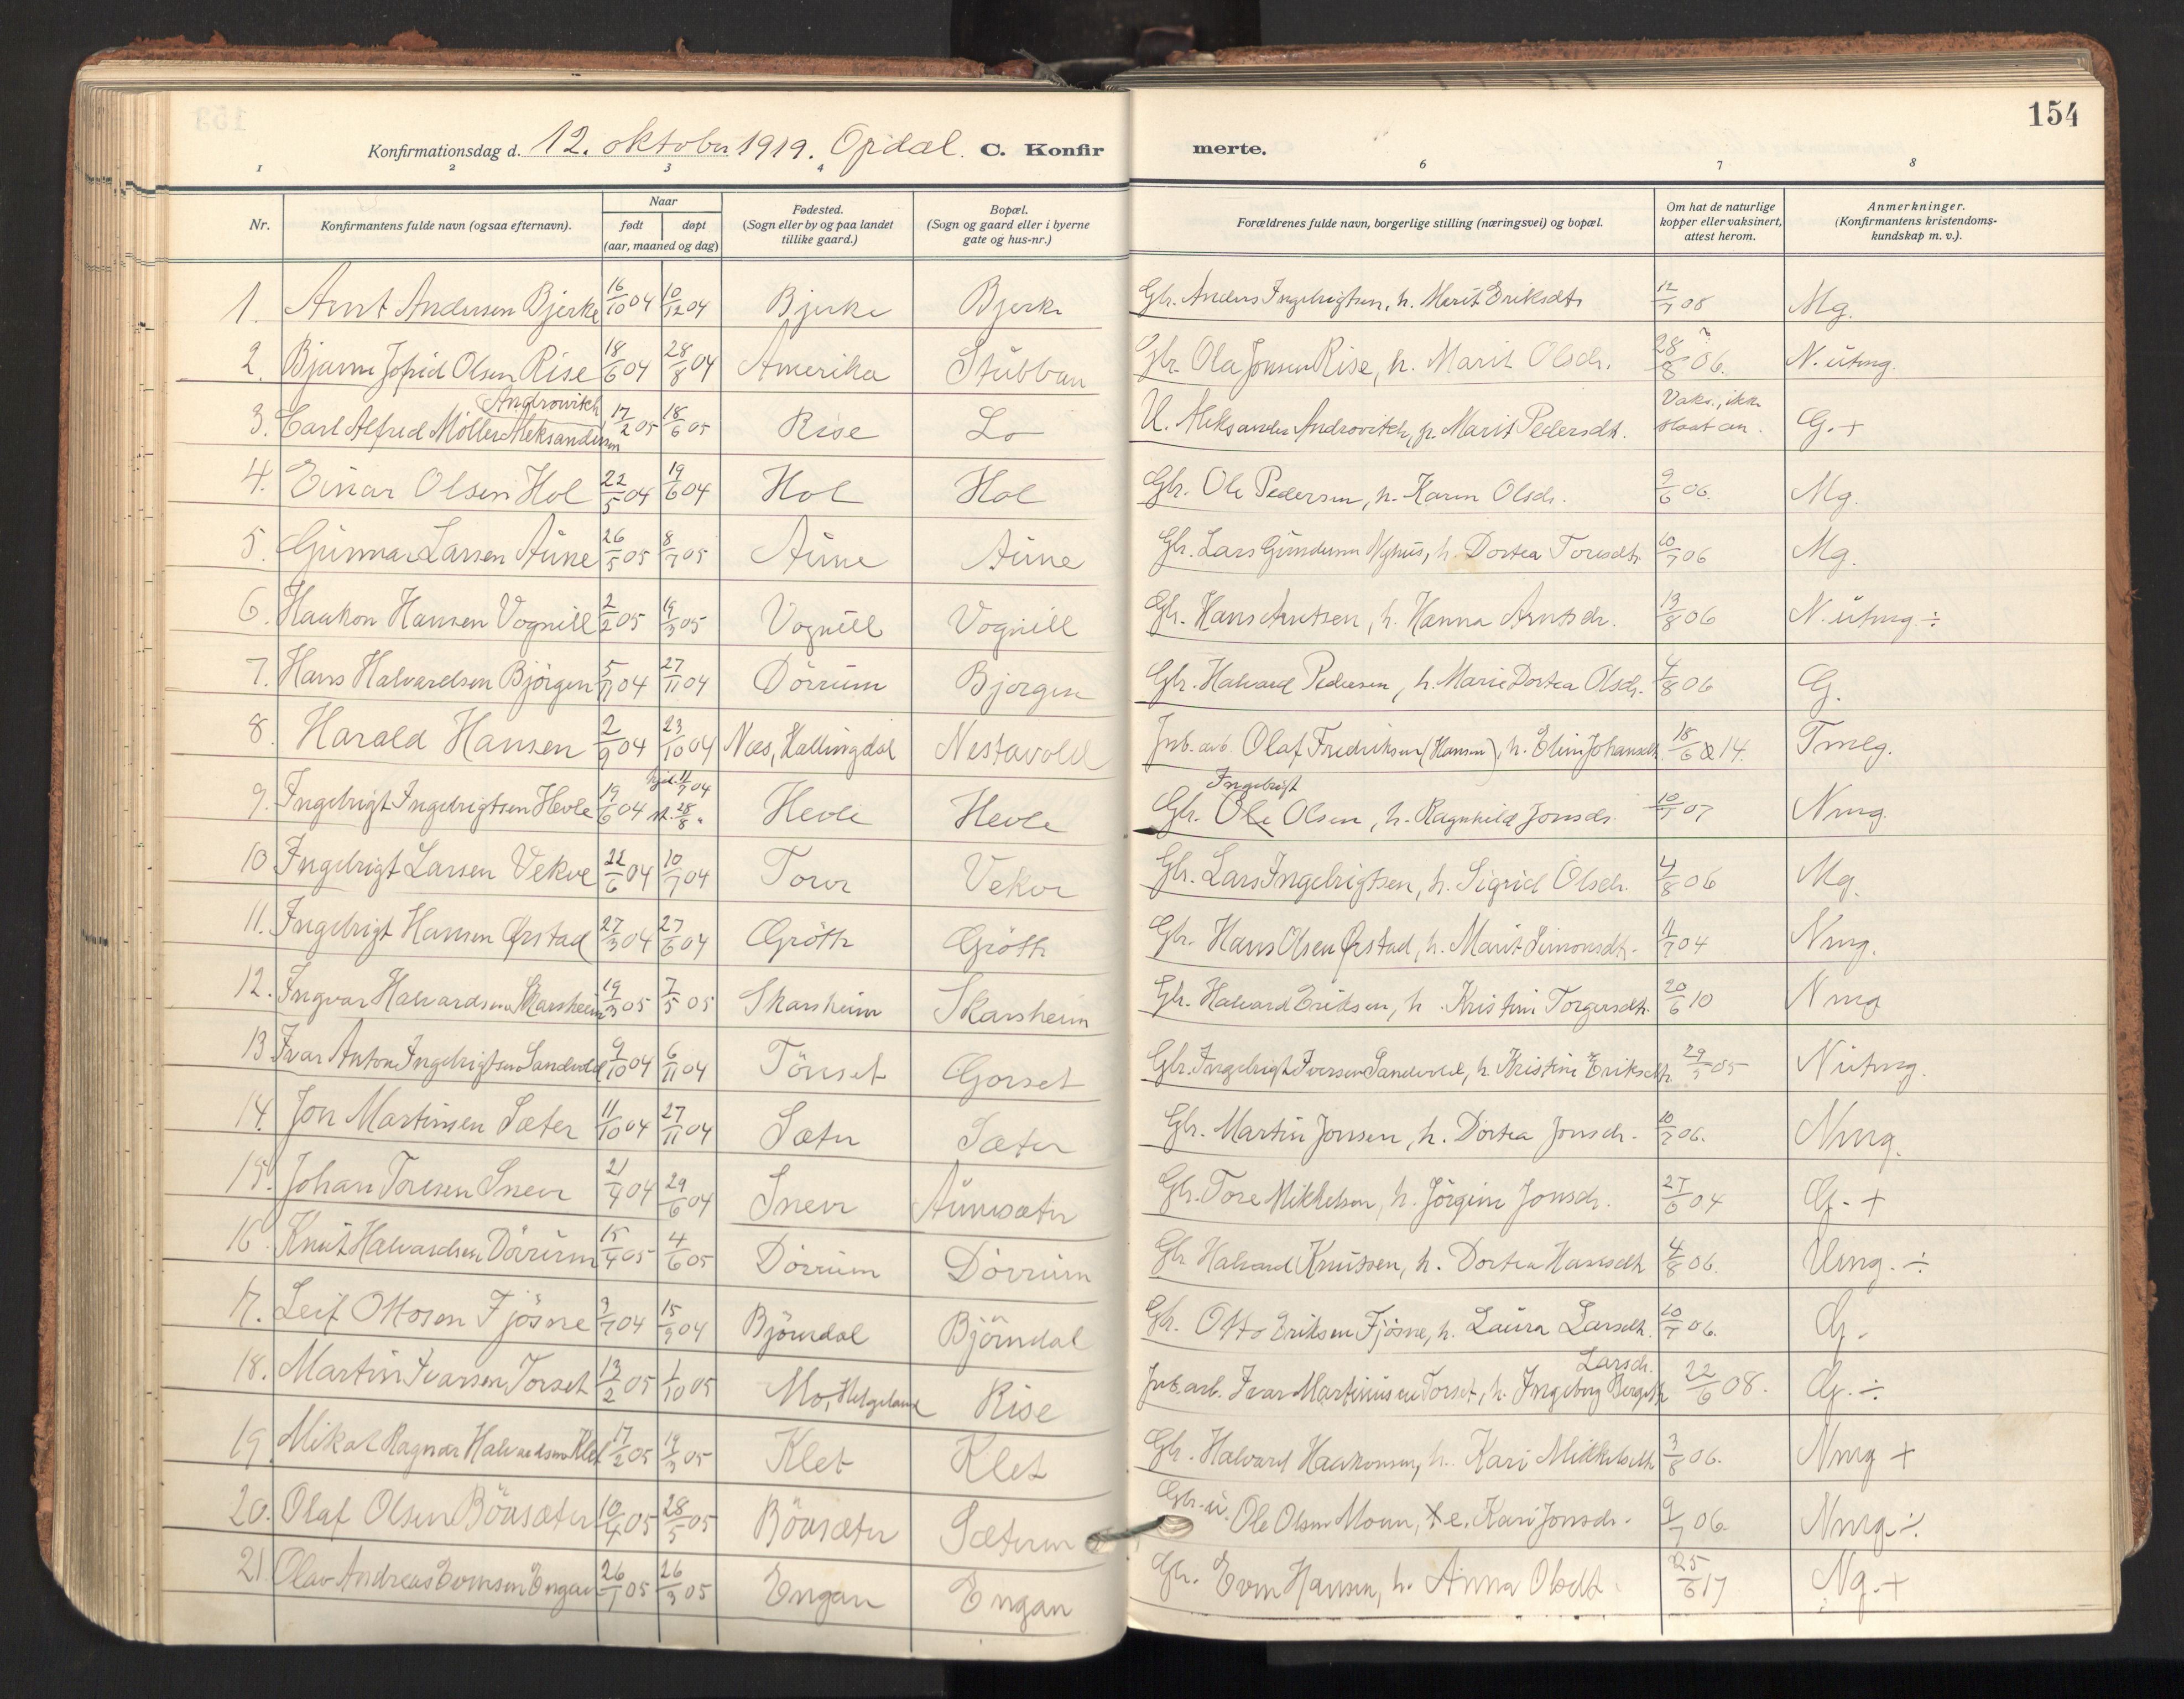 154
Konfirmationsdag d. 12. oktober 1919. Opdal. C. Konfirmerte.
1 2 3 4 6 7 8
Nr. Konfirmantens fulde navn (ogsaa efternavn). Naar født døpt (aar, maaned og dag) Fødested. (Sogn eller by og paa landet tillike gaard.) Bopæl. (Sogn og gaard eller i byerne gate og hus-nr.) Forældrenes fulde navn, borgerlige stilling (næringsvei) og bopæl. Om hat de naturlige kopper eller vaksinert, attest herom. Anmerkninger. (Konfirmantens kristendoms-kundskap m. v.).
1. Arnt Andersen Bjerke 16/10 04 10/12 04 Bjerke Bjerke Gbr. Anders Ingebrigtsen, h. Marit Eriksdtr 12/7 08 Mg.
2. Bjarne Jofrid Olsen Rise 18/6 04 28/8 04 Amerika Stubban Gbr. Ola Jonsen Rise, h. Marit Olsdr. 28/8 06. N. utmg.
3. Carl Alfred Möller Aleksandersen Androwitch 17/2 05 18/6 05 Rise Lo U. Aleksander Androvitch, p. Marit Pedersdt. Vaks., ikke slaat an. G. +
4. Einar Olsen Hol 22/5 04 19/6 04 Hol Hol Gbr. Ole Pedersen, h. Karen Olsdr. 9/6 06. Mg.
5. Gunnar Larsen Aune 26/5 05 8/7 05 Aune Aune Gbr. Lars Gundersen Myhus, h. Dortea Toresdtr. 10/7 06 Mg.
6. Haakon Hansen Vognill 2/2 05 19/3 05 Vognill Vognill Gbr. Hans Arntsen, h. Hanna Arntsdr. 13/8 06 N. utmg. ÷
7. Hans Halvardsen Bjørgen 5/11 04 27/11 04 Dörrum Bjørgen Gbr. Halvard Pedersen, h. Marie Dortea Olsdr. 4/8 06 G.
8. Harald Hansen 2/9 04 23/10 04 Næs, Hallingdal Nestavold Jnb. arb. Olaf Fredriksen (Hansen), h. Elin Johansdt. 18/6 14. Tmlg.
9. Ingebrigt Ingebrigtsen Hevle 19/6 04 hjd. 11/7 04 st. 28/8 " Hevle Hevle Gbr. Ole Ingebrigt Olsen, h. Ragnhild Jonsdr. 10/7 07 Nmg.
10 Ingebrigt Larsen Vekve 22/6 04 10/7 04 Torve Vekve Gbr. Lars Ingebrigtsen, h. Sigrid Olsdr. 4/8 06 Mg.
11. Ingebrigt Hansen Ørstad 27/3 04 27/6 04 Grötte Grötte Gbr. Hans Olsen Ørstad, h. Marit Simonsdt. 11/7 04 Nmg.
12. Ingvar Halvardsen Skarsheim 19/3 05 7/5 05 Skarsheim Skarsheim Gbr. Halvard Eriksen, h. Kristine Torgersdtr. 20/6 10 Nmg
13 Ivar Anton Ingebrigtsen Sandvold 9/10 04 6/11 04 Tönset Gorset Gbr. Ingebrigt Iversen Sandvold, h. Kristine Eriksdtr. 29/5 05 Nutmg.
14. Jon Martinsen Sæter 11/10 04 27/11 04 Sæter Sæter Gbr. Martin Jonsen, h. Dortea Jonsdr. 10/7 06. Nmg.
15. Johan Toresen Sneve 21/4 04 29/6 04 Sneve Aunesæter Gbr. Tore Mikkelsen, h. Jörgine Jonsdr. 27/6 04 G. +
16. Knut Halvardsen Dörrum 15/4 05 4/6 05 Dörrum Dörrum Gbr Halvard Knutsen, h. Dortea Hansdt. 4/8 06. Umg. ÷
17. Leif Ottosen Fjösne 3/7 04 15/9 04 Björndal Björndal Gbr. Otto Eriksen Fjösne, h. Laura Larsdt. 10/7 06. G.
18. Martin Ivarsen Torset 13/2 05 1/10 05 Mo, Helgeland Rise Jnb. arb. Ivar Martinusen Torset, h. Ingeborg Bergitte Larsdr. 22/6 08. G. ÷
19. Mikal Ragnar Halvardsen Klet 17/2 05 19/3 05 Klet Klet Gbr. Halvard Haakonsen, h. Kari Mikkelsdt. 3/8 06. Nmg +
20. Olaf Olsen Böasæter 10/4 05 28/5 05 Böasæter Sæteren Gbr. u. Ole Olsen Moen, f. e. Kari Jonsdr. 9/7 06. Nmg. ÷
21. Olav Andreas Evensen Engan 26/1 05 26/3 05 Engan Engan Gbr. Even Hansen, h. Anna Olsdt. 25/6 17 Ng. +